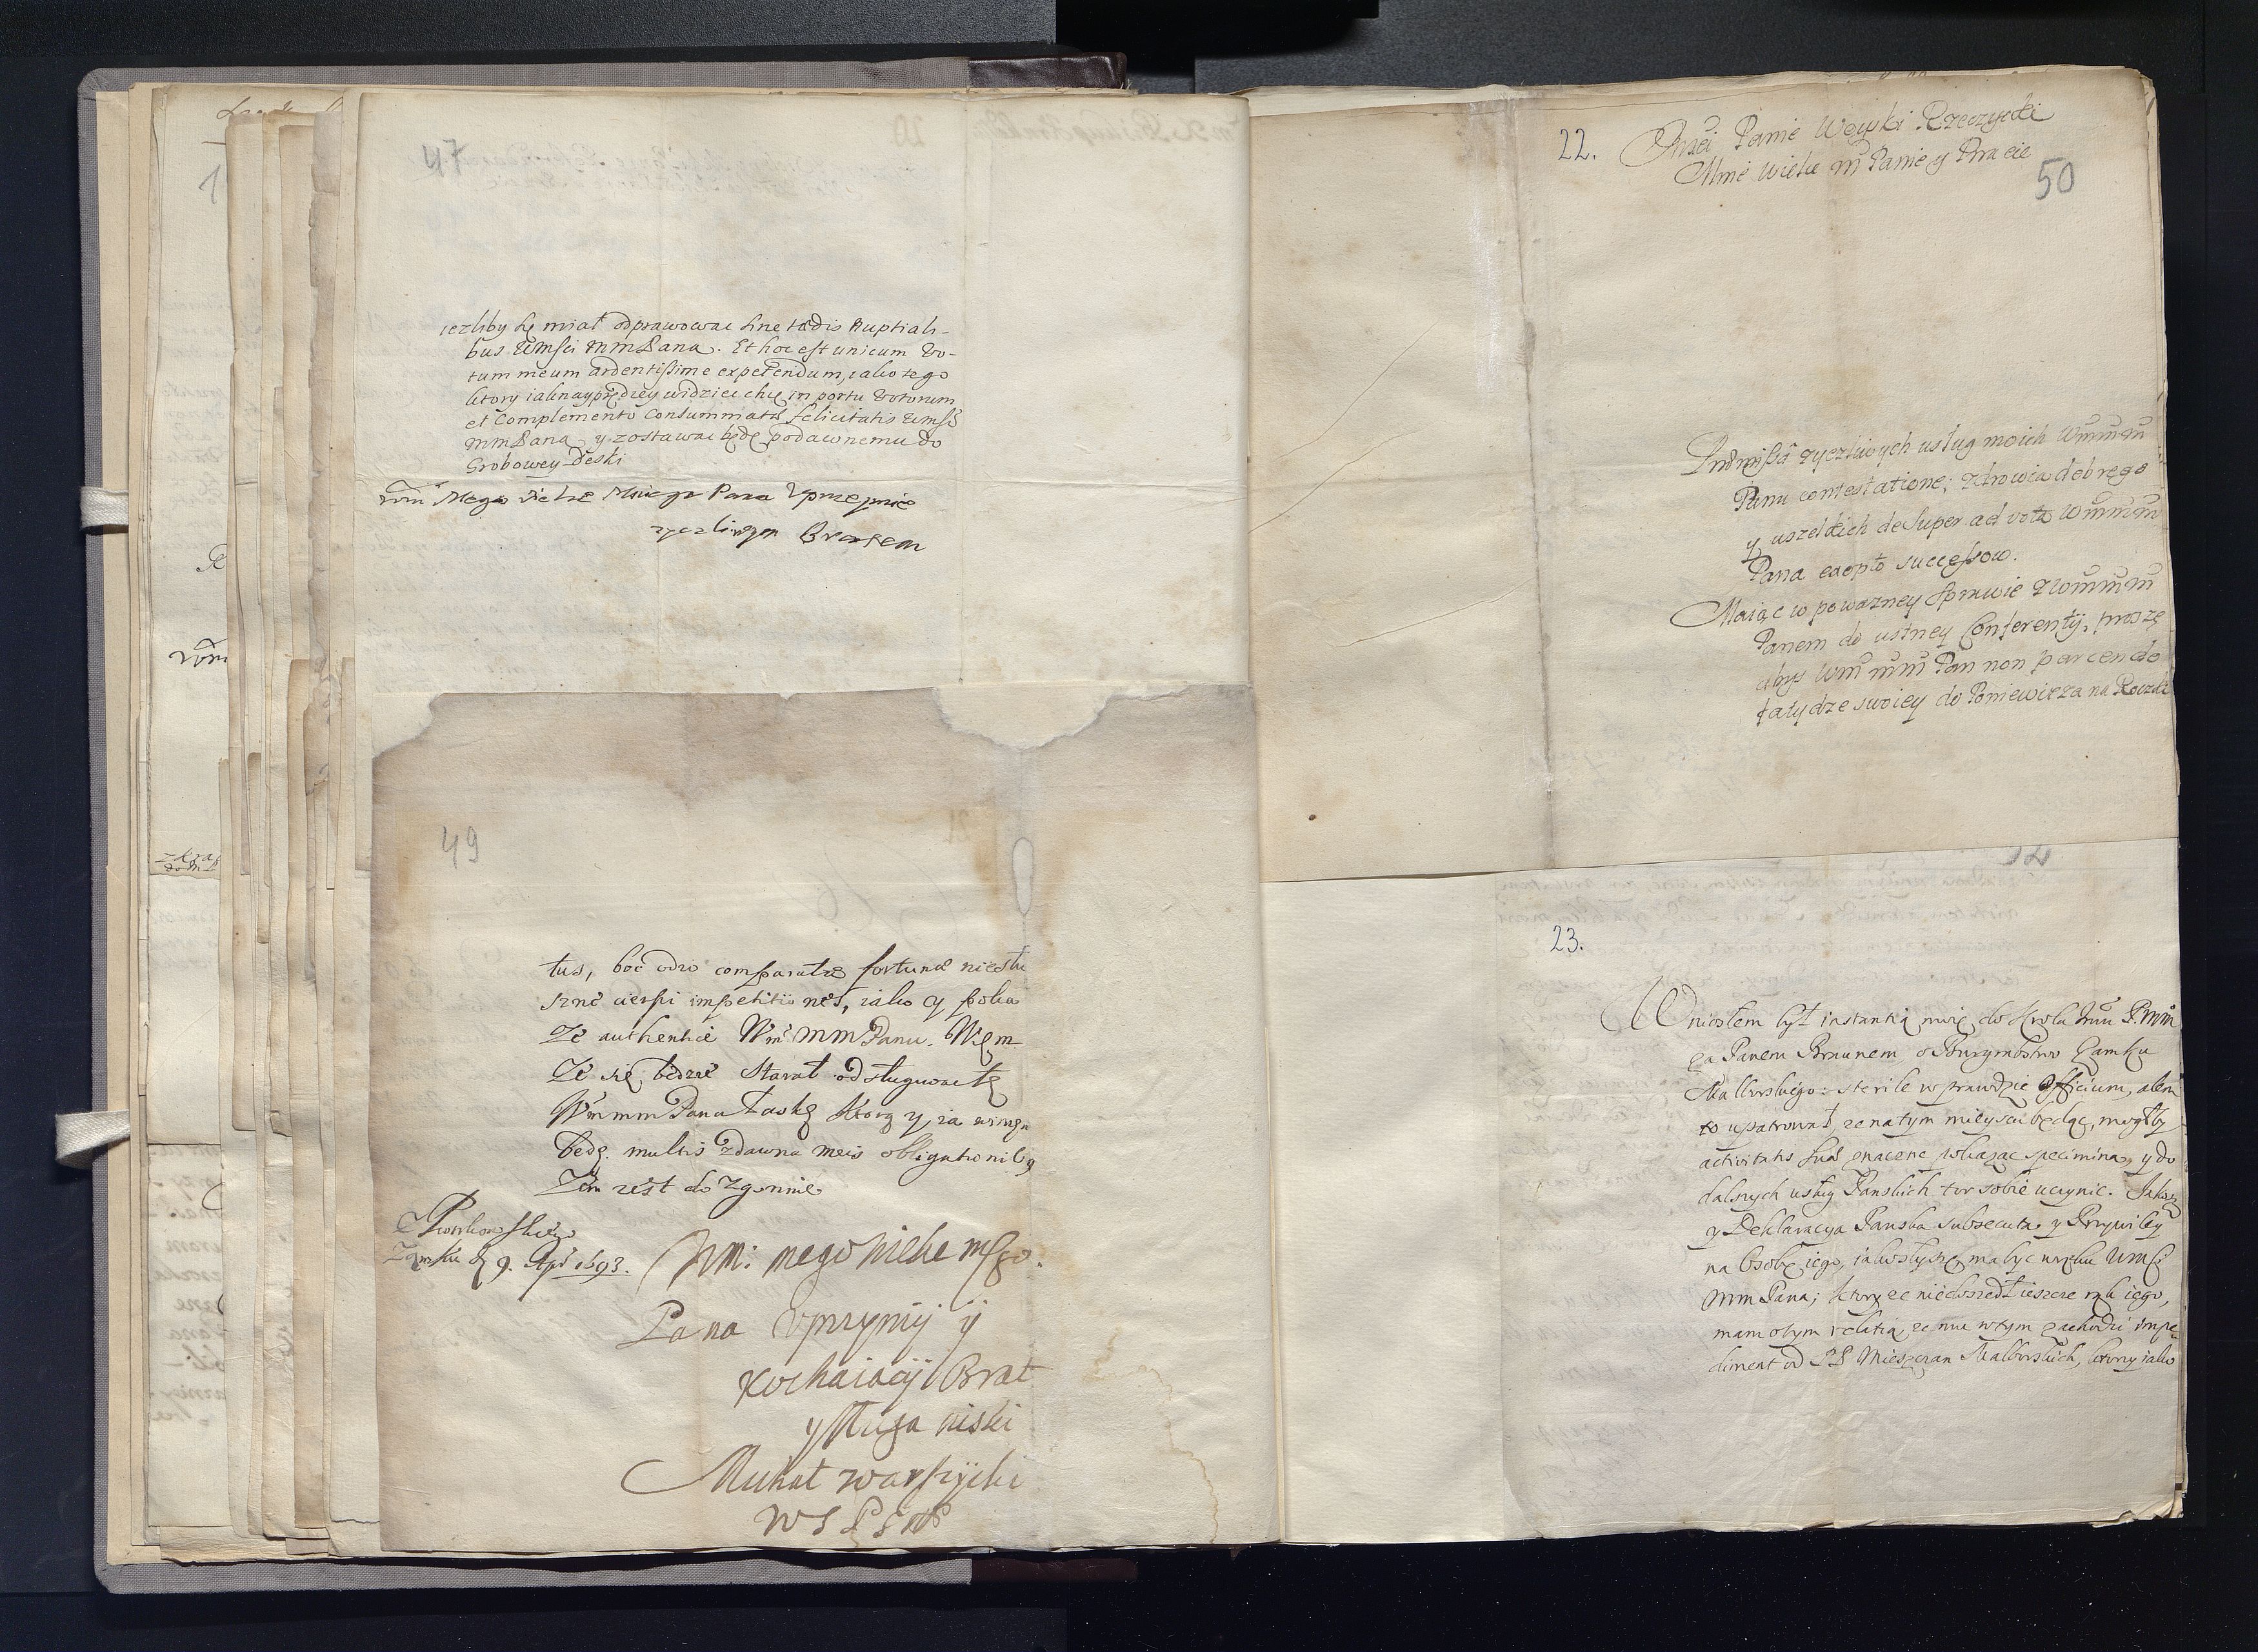 47
iezliby się miał odprawowac sine tædis Nuptiali-
bus Wmsci MmPana. Et hoc est unicum Vo-
tum meum ardentissime expetendum, iako tego
ktory iaknayprędzey widziec chcę in portu Votorum
et Complemento Consummatæ felicitatis Wmsci
MmPana y zostawac będę podawnemu do
Grobowey Deski
Wm Mego Wielce Msciwego Pana Uprzejmie
zyczliwym Bratem
49
tus, boć odio comparatæ fortunæ niesłu
szne cierpi impetitiones, iako y poka
że authentice Wm MMPanu. Wzm
Ze się będzie starał odsługiwac tę
Wm mm Pana Łaskę ktorą y ia winien
będę multis zdawna meis obligationibq
Zem iest do zgonu
Piotrkowskiego
Zamku d 9. Apr 1693.
Wm: mego Wielce msgo.
Pana Uprzymij ij
Kochaiącij Brat
y sługa niski
Michał Warszycki
W S
22. Msci Panie Woyski Rzeczycki
Mnie Wielce m Panie y Bracie
50
Præmissa zyczliwych usług moich Wm mm
Panu contestatione; zdrowia dobrego
y wszelkich desuper ad vota Wm mm
Pana exopto successow.
Maiąc w powazney sprawie z Wm mm
Panem do ustney Conferentij, proszę
abys Wm mm Pan non parcendo
fatydze swoiey do Poniewieza na Roczki
52
23.
Wniosłem był instantią moię do Krola Jmci P. Mm
za Panem Braunem o Burgrabstwo Zamku
Malborskiego: sterile wprawdzie officium, alem
to upatrował, ze na tym mieyscu będąc, mogłby
activitatis suæ znaczne pokazac specimina, y do
dalszych usług Panskich tor sobie uczynic. Jakoz
y Deklaracya Panska subsecuta y Przywiley
na Osobę iego, iako słyszę, ma byc w ręku Wmsci
MmPana; ktory ze niedoszedł ieszcze rąk iego,
mam o tym relatią, ze mu w tym zachodzi impe-
diment od PP Mieszczan Malborskich, ktorzy iako